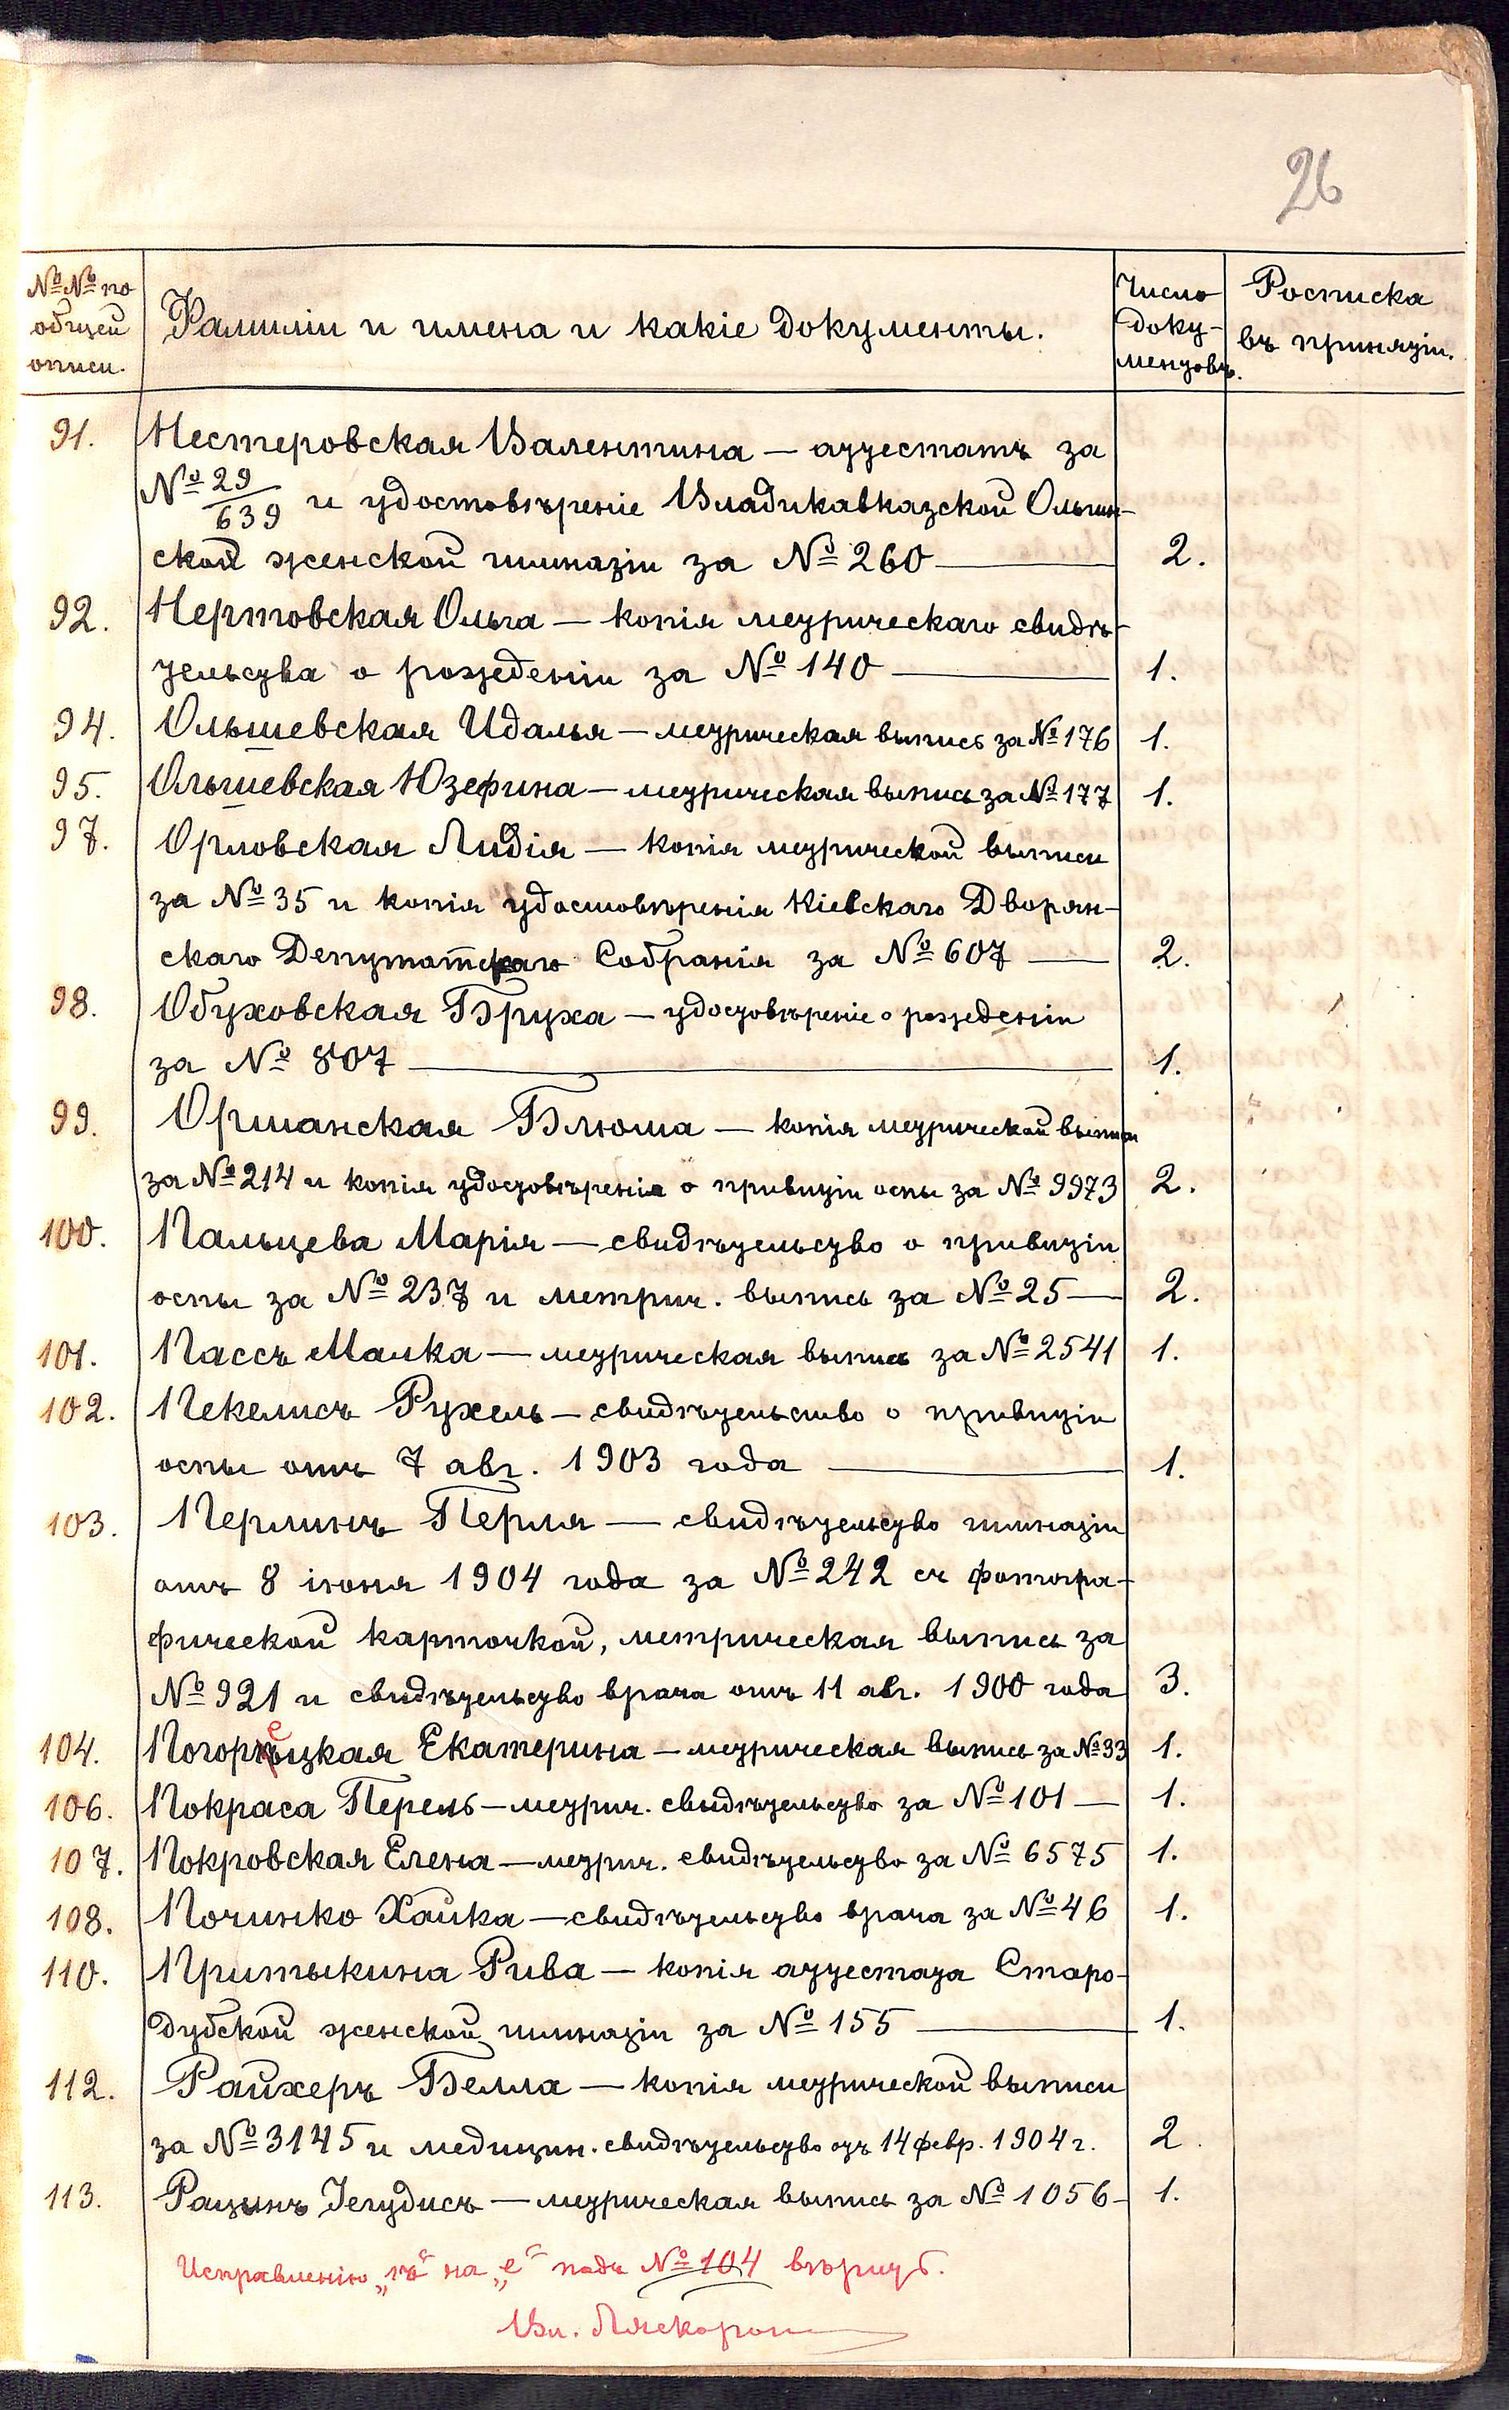 26
№№ по общей описи.
Фамиліи и имена и какіе документы.
Число доку-ментовъ.
Росписка въ принятіи.
91. Нестеровская Валентина — аттестатъ за
№ 29/639 и удостовѣреніе Владикавказской Ольгин-
ской женской гимназіи за № 260 — 2.
92. Нертовская Ольга — копія метрическаго свидѣ-
тельства о рожденіи за № 140 — 1.
94. Ольшевская Идалья — метрическая выпись за № 176 1.
95. Ольшевская Юзефина — метрическая выпись за № 177 1.
97. Орловская Лидія — копія метрической выписи
за № 35 и копія удостовѣренія Кіевскаго Дворян-
скаго Депутатскаго Собранія за № 607 — 2.
98. Обуховская Бруха — удостовѣреніе о рожденіи
за № 807 — 1.
99. Оршанская Блюма — копія метрической выписи
за № 214 и копія удостовѣренія о привитіи оспы за № 9973 2.
100. Пальцева Марія — свидѣтельство о привитіи
оспы за № 237 и метрич. выпись за № 25 — 2.
101. Пассъ Малка — метрическая выпись за № 2541 1.
102. Пекелисъ Рухель — свидѣтельство о привитіи
оспы отъ 7 авг. 1903 года — 1.
103. Перлинъ Перля — свидѣтельство гимназіи
отъ 8 іюня 1904 года за № 242 съ фотогра-
фической карточкой, метрическая выпись за
№ 921 и свидѣтельство врача отъ 11 авг. 1900 года 3.
104. Погорецкая Екатерина — метрическая выпись за № 33 1.
106. Покраса Перель — метрич. свидѣтельство за № 101 — 1.
107. Покровская Елена — метрич. свидѣтельство за № 6575 1.
108. Починко Хайка — свидѣтельство врача за № 46 1.
110. Притыкина Рива — копія аттестата Старо-
дубской женской гимназіи за № 155 — 1.
112. Райхеръ Белла — копія метрической выписи
за № 3145 и медицин. свидѣтельство отъ 14 февр. 1904 г. 2.
113. Рацынъ Іегудисъ — метрическая выпись за № 1056 - 1.
Исправленію „ѣ“ на „е“ подъ № 104 вѣрить.
Вл.